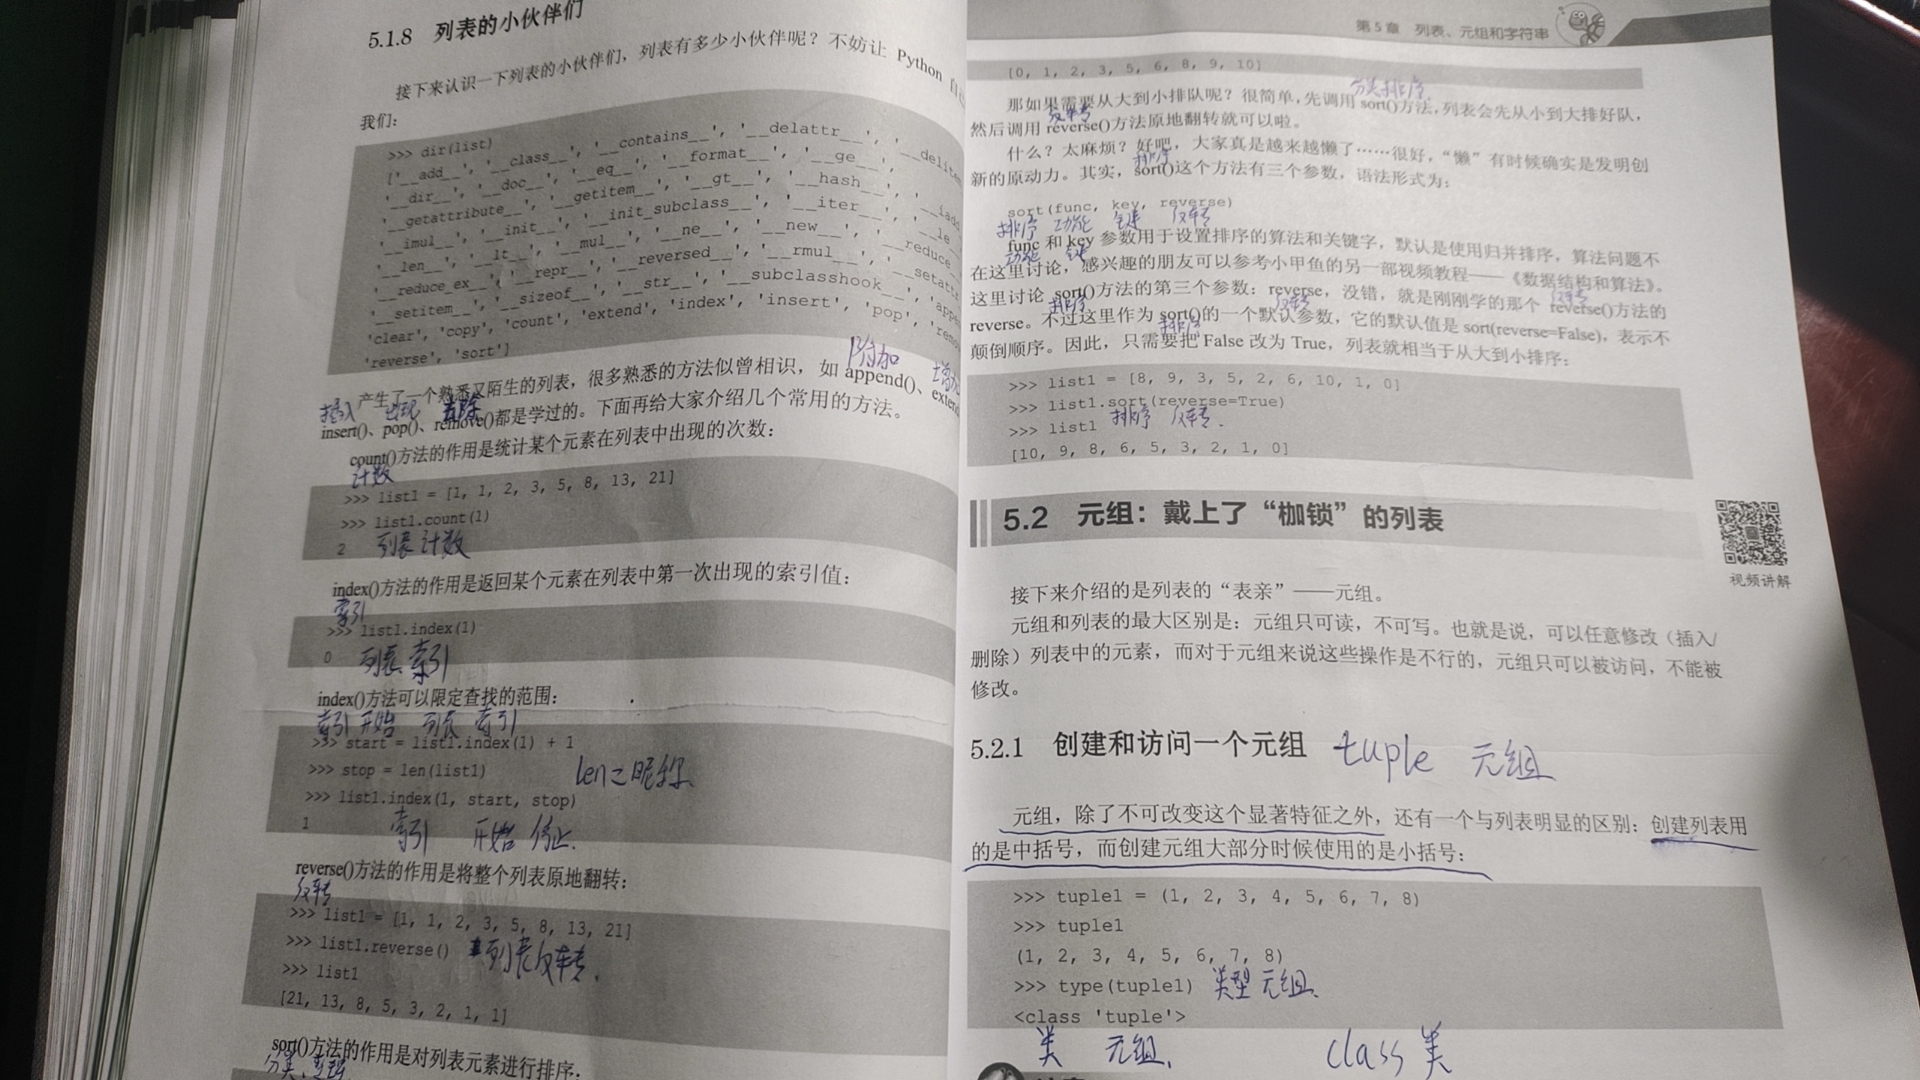 5.1.8 列表的小伙伴们
接下来认识一下列表的小伙伴们，列表有多少小伙伴呢？不妨让 Python
我们：
>>> dir(list)
['__add__', '__class__', '__contains__', '__delattr__', '__delite
'__dir__', '__doc__', '__eq__', '__format__', '__ge__',
'__getattribute__', '__getitem__', '__gt__', '__hash__', '__iadd
'__imul__', '__init__', '__init_subclass__', '__iter__', '__le
'__len__', '__lt__', '__mul__', '__ne__', '__new__', '__reduce
'__reduce_ex__', '__repr__', '__reversed__', '__rmul__', '__setattr
'__setitem__', '__sizeof__', '__str__', '__subclasshook__', 'appe
'clear', 'copy', 'count', 'extend', 'index', 'insert', 'pop', 'remo
'reverse', 'sort']
附加
产生了一个熟悉又陌生的列表，很多熟悉的方法似曾相识，如 append()、extend
插入 出现
insert()、pop()、remove()都是学过的。下面再给大家介绍几个常用的方法。
count()方法的作用是统计某个元素在列表中出现的次数：
计数
>>> list1 = [1, 1, 2, 3, 5, 8, 13, 21]
>>> list1.count(1)
2 列表 计数
index()方法的作用是返回某个元素在列表中第一次出现的索引值：
索引
>>> list1.index(1)
0 列表 索引
index()方法可以限定查找的范围：
索引 开始 列表 索引
>>> start = list1.index(1) + 1
>>> stop = len(list1) len之昵称
>>> list1.index(1, start, stop)
1 索引 开始 停止
reverse()方法的作用是将整个列表原地翻转：
反转
>>> list1 = [1, 1, 2, 3, 5, 8, 13, 21]
>>> list1.reverse() 列表反转.
>>> list1
[21, 13, 8, 5, 3, 2, 1, 1]
sort()方法的作用是对列表元素进行排序：
分类
第 5 章 列表、元组和字符串
[0, 1, 2, 3, 5, 6, 8, 9, 10]
分类排序.
那如果需要从大到小排队呢？很简单，先调用 sort()方法，列表会先从小到大排好队，
反转
然后调用 reverse()方法原地翻转就可以啦。
什么？太麻烦？好吧，大家真是越来越懒了……很好，“懒”有时候确实是发明创
排序
新的原动力。其实，sort()这个方法有三个参数，语法形式为：
sort(func, key, reverse)
排序 功能 键 反转
func 和 key 参数用于设置排序的算法和关键字，默认是使用归并排序，算法问题不
功能 键
在这里讨论，感兴趣的朋友可以参考小甲鱼的另一部视频教程——《数据结构和算法》。
这里讨论 sort()方法的第三个参数：reverse，没错，就是刚刚学的那个 reverse()方法的
排序 反转 反转
reverse。不过这里作为 sort()的一个默认参数，它的默认值是 sort(reverse=False)，表示不
排序
颠倒顺序。因此，只需要把 False 改为 True，列表就相当于从大到小排序：
>>> list1 = [8, 9, 3, 5, 2, 6, 10, 1, 0]
>>> list1.sort(reverse=True)
>>> list1 排序 反转.
[10, 9, 8, 6, 5, 3, 2, 1, 0]
5.2 元组：戴上了“枷锁”的列表
视频讲解
接下来介绍的是列表的“表亲”——元组。
元组和列表的最大区别是：元组只可读，不可写。也就是说，可以任意修改（插入/
删除）列表中的元素，而对于元组来说这些操作是不行的，元组只可以被访问，不能被
修改。
5.2.1 创建和访问一个元组 tuple 元组
元组，除了不可改变这个显著特征之外，还有一个与列表明显的区别：创建列表用
的是中括号，而创建元组大部分时候使用的是小括号：
>>> tuple1 = (1, 2, 3, 4, 5, 6, 7, 8)
>>> tuple1
(1, 2, 3, 4, 5, 6, 7, 8)
>>> type(tuple1) 类型 元组.
<class 'tuple'>
类 元组. class 类